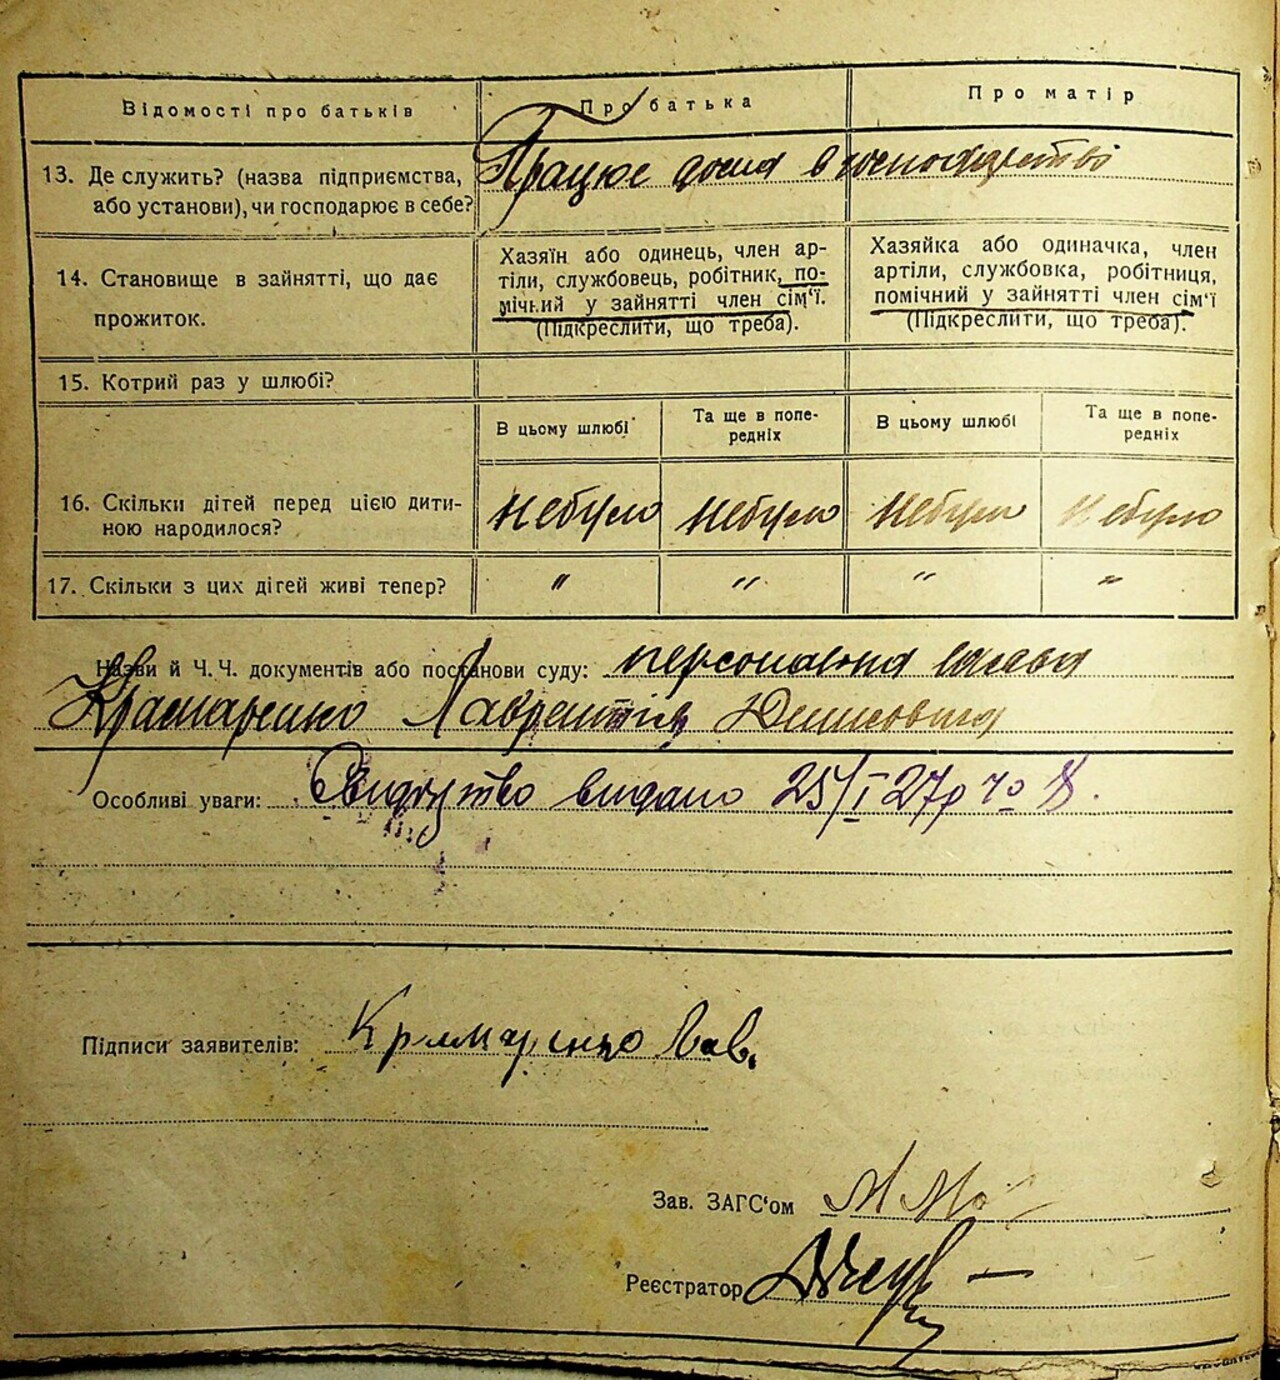 Відомості про батьків
Про батька
Про матір
13. Де служить? (назва підприємства,
або установи), чи господарює в себе?
Працює дома в господарстві
14. Становище в зайнятті, що дає
прожиток.
Хазяїн або одинець, член ар-
тіли, службовець, робітник, по-
мічний у зайнятті член сім'ї.
(Підкреслити, що треба).
Хазяйка або одиначка, член
артіли, службовка, робітниця,
помічний у зайнятті член сім'ї
(Підкреслити, що треба).
15. Котрий раз у шлюбі?
В цьому шлюбі
Та ще в попе-
редніх
В цьому шлюбі
Та ще в попе-
редніх
16. Скільки дітей перед цією дити-
ною народилося?
небуло небуло небуло небуло
17. Скільки з цих дітей живі тепер?
" " " "
Назви й Ч.Ч. документів або постанови суду: персональна заява
Крамаренко Лаврентія
Особливі уваги: Свидоцтво видано 25/I 27р чо 8.
Підписи заявителів: Крамаренко Лав.
Зав. ЗАГС'ом
Реєстратор